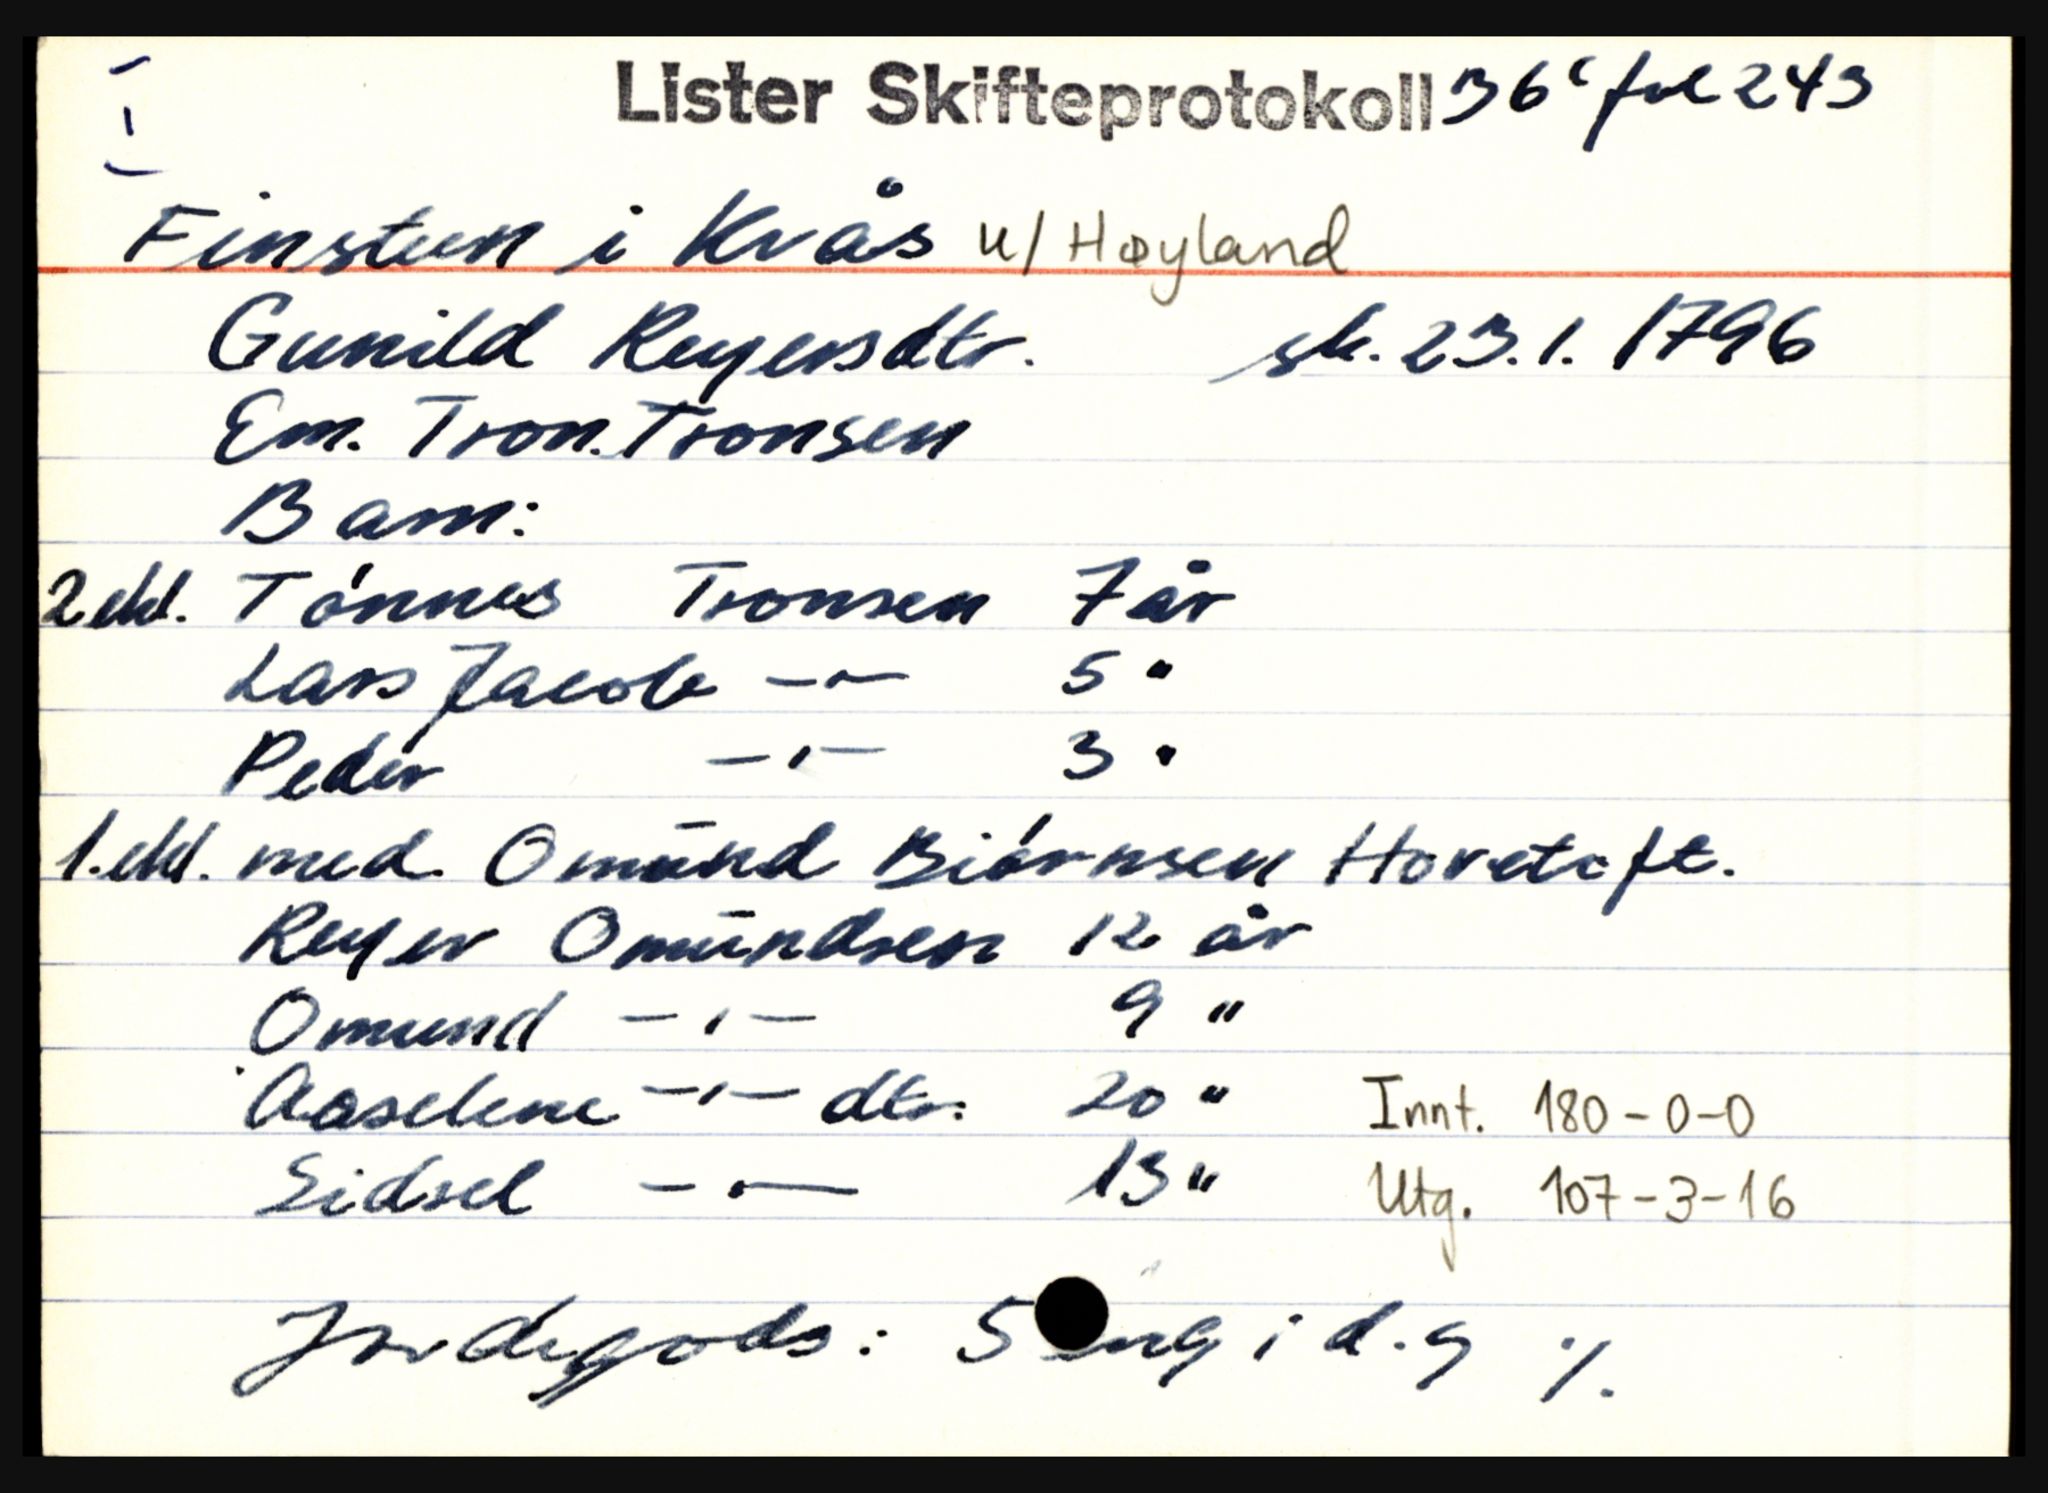 Lister Skifteprotokoll B 6c fol 243
Finsteen i Kvås u/ Høyland
Gunild Reyersdtr. sk. 23.1. 1796
Em. Tron Tronsen
Barn:
2 ekt. Tónnes Tronsen 7 år
Lars Jacob —„— 5 "
Peder —„— 3 "
1. ekt. med Omund Biórnsen
Reyer Omundsen 12 år
Omund —„— 9 "
Aaselene —„— dtr. 20 " Innt. 180-0-0
Sidsel —„— 13 " Utg. 107-3-16
Jordegods: 5 eng i d.g ./.